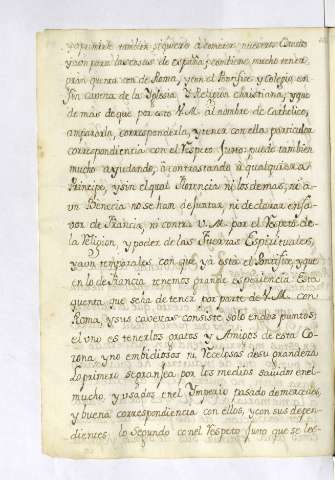 y oprimirle tambien siquiere acometer nuestros Estados
y aun para las cosas de españa; conviene mucho tener
gran quenta con de Roma, y con el Pontifice y Colegio en
fin caveza de la Yglesia, y Religion christiana, y que
demas de que por esto V. M. al nombre de Catholico,
ampararla, corresponderla, y tener con ella particular
correspondiencia con el Respeto Justo; puede tambien
mucho ayudando, ò contrastando à qualquiera
Principe, y sin el qual Florencia ni los demas, ni à
un Benecia no se han de juntar, ni declarar en fa
vor de Francia, ni contra V. M. por el Respeto de
la Religion, y poder de las Fuerzas Espirituales,
y aun temporales con que ya está el Pontifice, y que
en lo de Francia tenemos grande esperiencia. Esta
quenta que se ha de tener por parte de V. M. con
Roma, y sus cavezas consiste solo en dos puntos;
el uno es tenerlos gratos y Amigos de esta Co-
rona y no embidiosos ni Recelosos de su grandeza
Lo primero se grangea por los medios savidos en el
mucho, y usados en el Ymperio pasado de mercedes,
y buena correspondiencia con ellos, y con sus depen-
dientes, lo Segundo con el Respeto Justo que se les-